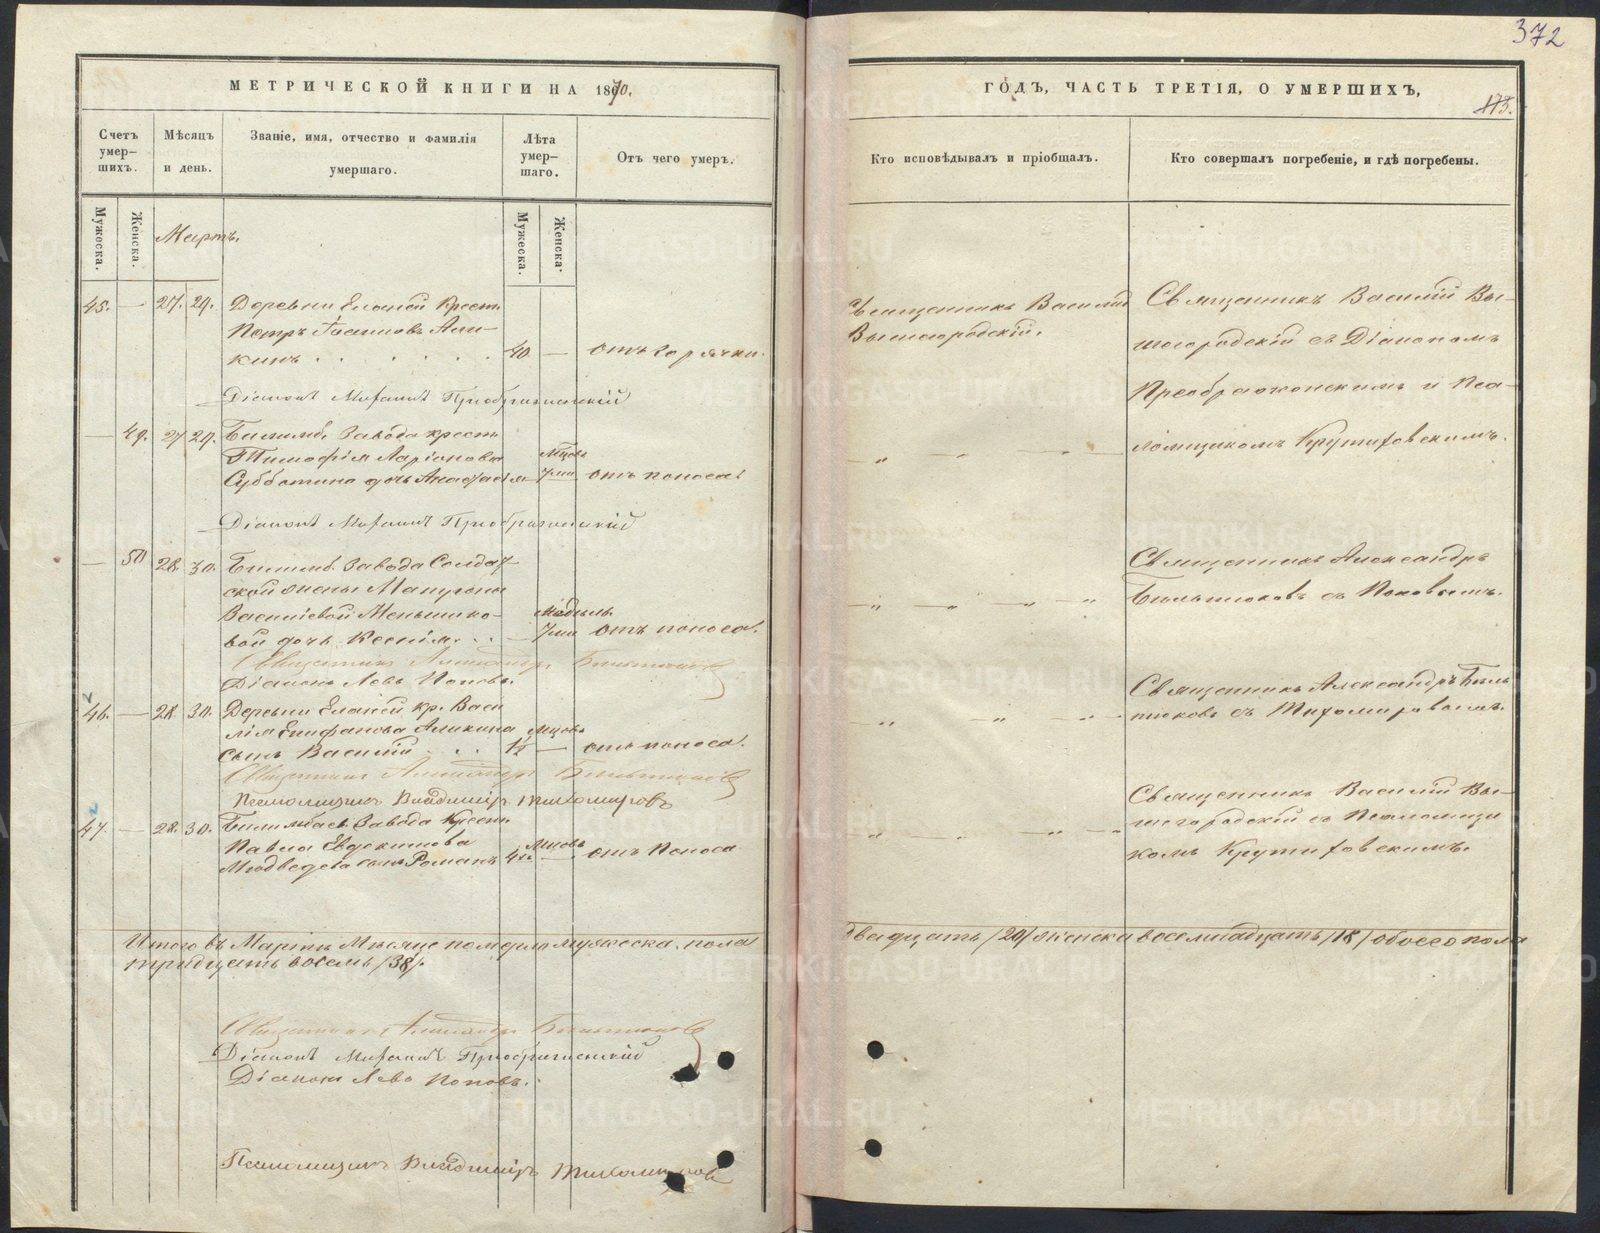 372
МЕТРИЧЕСКОЙ КНИГИ НА 1870.
ГОДЪ, ЧАСТЬ ТРЕТІЯ, О УМЕРШИХЪ,
175.
Счетъ умер-
шихъ.
Мѣсяцъ
и день.
Званіе, имя, отчество и фамилія
умершаго.
Лѣта
умер-
шаго.
Отъ чего умеръ.
Кто исповѣдывалъ и пріобщалъ.
Кто совершалъ погребеніе, и гдѣ погребены.
Мужеска.
Женска.
Мужеска.
Женска.
Мартъ.
45. — 27. 29. Деревни Еланей Крест.
Петръ Алi-
кинъ . . . . . 40 — отъ горячки.
Священникъ Василій
Вышегородскій.
Священникъ Василій Вы-
шегородскій съ Діакономъ
Преображенскимъ и Пса-
ломщикомъ Крутиховскимъ.
Діаконъ Михаилъ Преображенскій
— 49. 27 29. Билимб. Завода крест.
Тимофія Ларіонова
Субботина дочь Анастасія — 7ми мѣцовъ отъ поноса.
Діаконъ Михаилъ Преображенскій
— 50 28. 30. Билимб. Завода Солдат-
ской жены Матроны
Василіевой Меньшико-
вой дочь Ксенія . . — 7ми недѣль. отъ поноса.
Священникъ Александръ
Бильтюковъ съ Поповымъ.
Священникъ Александръ Бильтюковъ
Діаконъ Левъ Поповъ.
46. — 28. 30. Деревни Еланей кр. Васи
лія Епифанова Аликина мѣцовъ
сынъ Василій . . . 1½ — отъ поноса.
Священникъ Александръ Биль
тюковъ съ Тихомировымъ.
Священникъ Александръ Бильтюковъ
Псаломщикъ Владиміръ Тихомировъ
47. — 28. 30. Билимбаев. Завода Крест.
Павла Евдокимова мѣцовъ
Медведева сынъ Романъ — отъ Поноса
Священникъ Василій Вы-
шегородскій съ Псаломщи
комъ Крутиховскимъ.
Итого въ Мартѣ Мѣсяце померло мужеска пола
двадцать /20/ женска восемнадцать /18/ обоего пола
тридцать восемь /38/.
Священникъ Александръ Бильтюковъ
Діаконъ Михаилъ Преображенскій
Діаконъ Левъ Поповъ.
Псаломщикъ Владиміръ Тихомировъ
METRIKI.GASO-URAL.RU